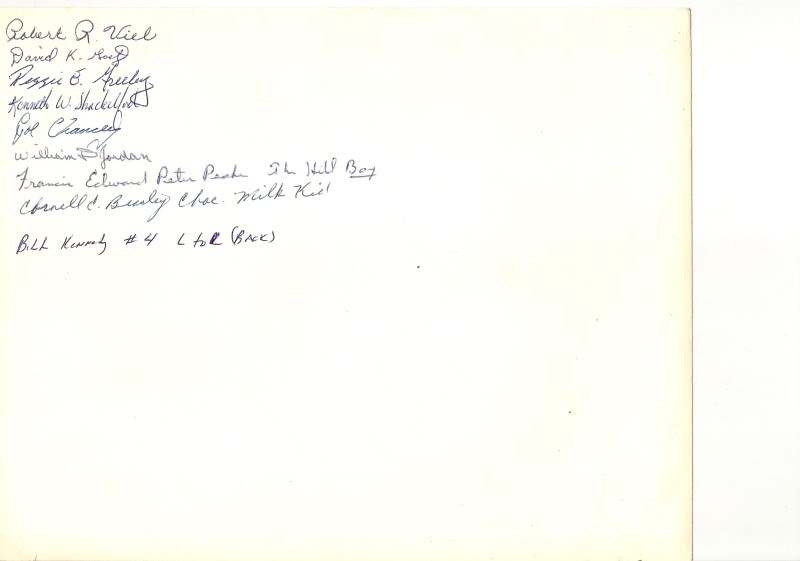 Robert R. Viel
David K.
Peggie B. Greeley
Kenneth W. Shackelford
Chancey
William E Jordan
Francis Edward Peter The Hill Boy
C. Beasley Choc. Milk Kid
Bill Kennedy #4 L to R (Back)